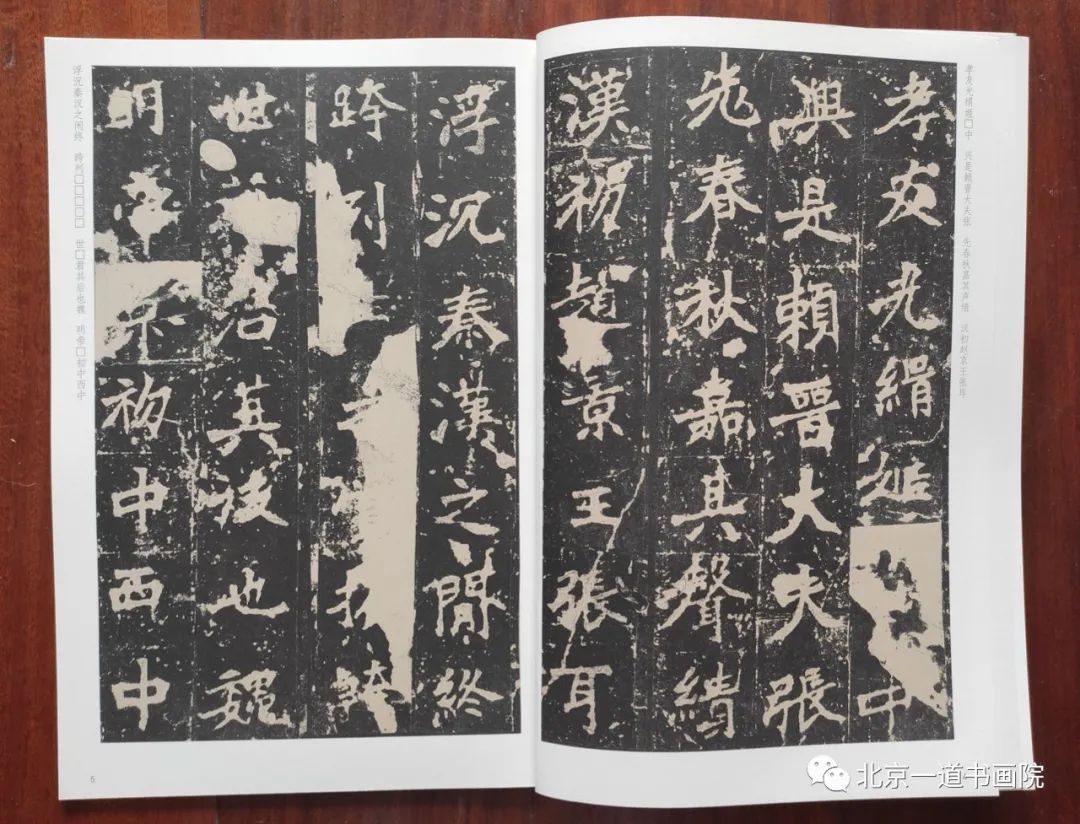 孝友光緝 中
興是賴晉大夫張
先春秋嘉其聲績
漢初趙景王張耳
孝友光缉 □中 兴是赖晋大夫张 先春秋嘉其声绩 汉初赵景王张耳
浮沉秦漢之間終
跨列
世 君其後也魏
明帝 初中西中
浮沉秦汉之间终 跨列□□□□□ 世□君其后也魏 明帝□初中西中
5
北京一道书画院